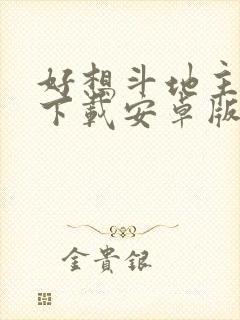 好想斗地主
下载安卓版
金貴銀